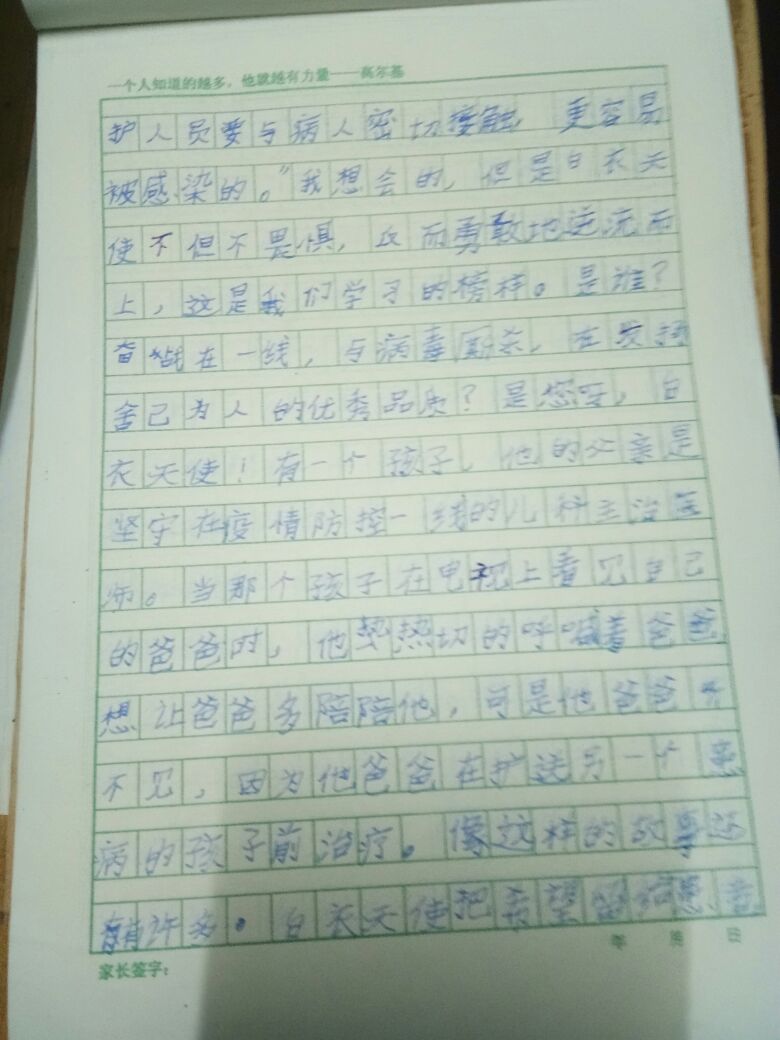 一个人知道的越多，他就越有力量——高尔基
护人员要与病人密切接触，更容易
被感染的。”我想会的，但是白衣天
使不但不畏惧，反而勇敢地逆流而
上，这是我们学习的榜样。是谁？
奋战在一线，与病毒厮杀，在发扬
舍己为人的优秀品质？是您呀，白
衣天使！有一个孩子，他的父亲是
坚守在疫情防控一线的儿科主治医
师。当那个孩子在电视上看见自己
的爸爸时，他热切的呼喊着爸爸
想让爸爸多陪陪他，可是他爸爸
不见，因为他爸爸在护送另一个患
病的孩子前治疗。像这样的故事还
有许多。白衣天使把希望留给患者
家长签字：
年 月 日